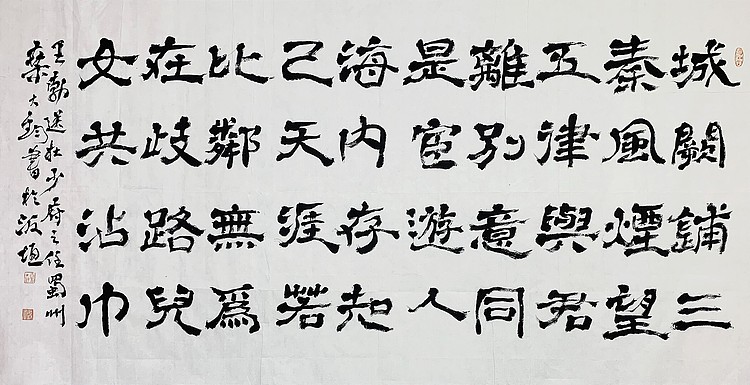 城闕鋪三
秦風煙望
五律與君
離別意同
是宦遊人
海內存知
己天涯若
比鄰無爲
在歧路兒
女共沾巾
王勃送杜少府之任蜀州
大鈞書於